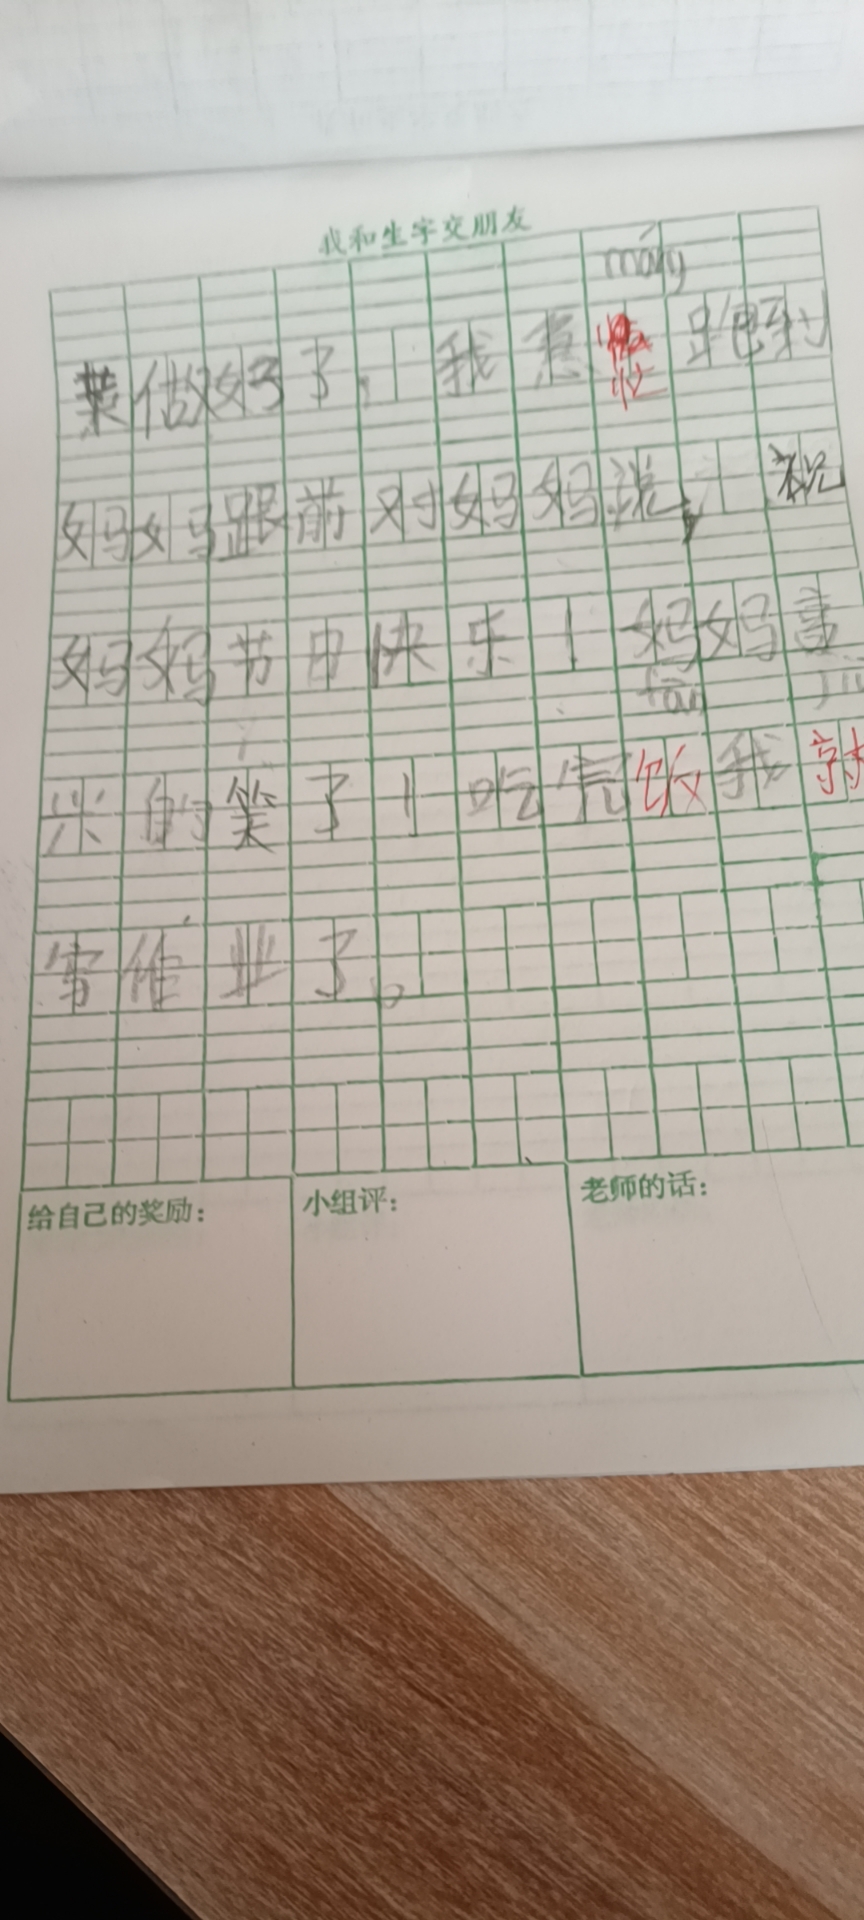 我和生字交朋友
máng
菜做好了，我急忙跑到
妈妈跟前对妈妈说，祝
妈妈节日快乐！妈妈高
fàn
兴的笑了！吃完饭我就
写作业了。
给自己的奖励：
小组评：
老师的话：